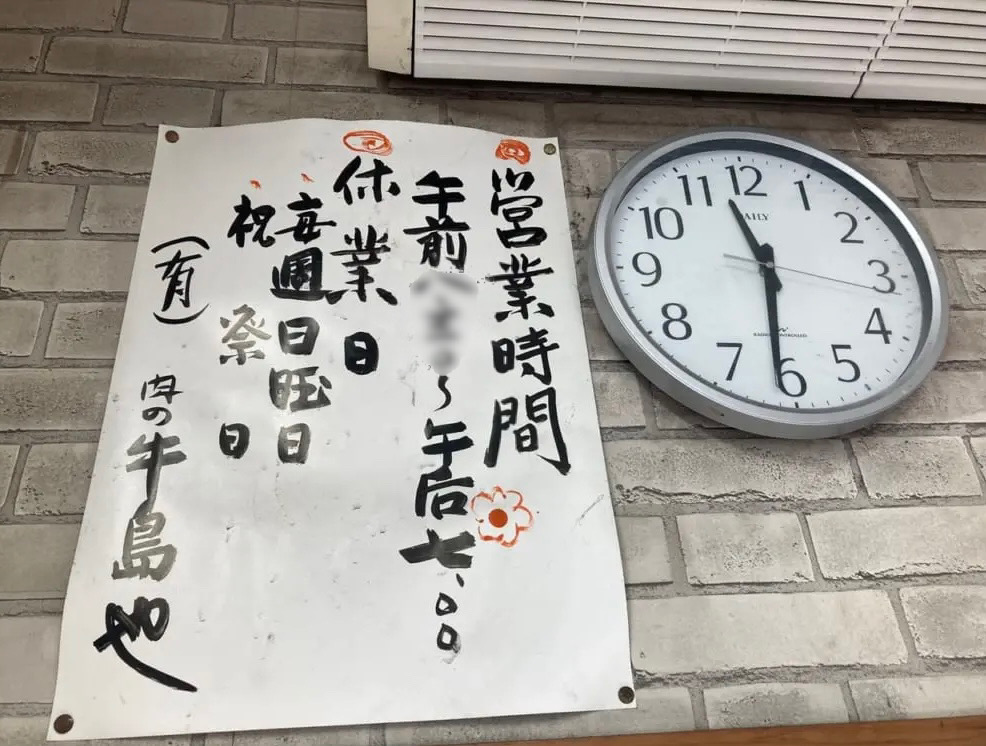 営業時間
午前 ～午后七、00
休業日
毎週日曜日
祝祭日
(有)肉の牛島
12
1
2
3
4
5
6
7
8
9
10
11
DAILY
RADIO CONTROLLED